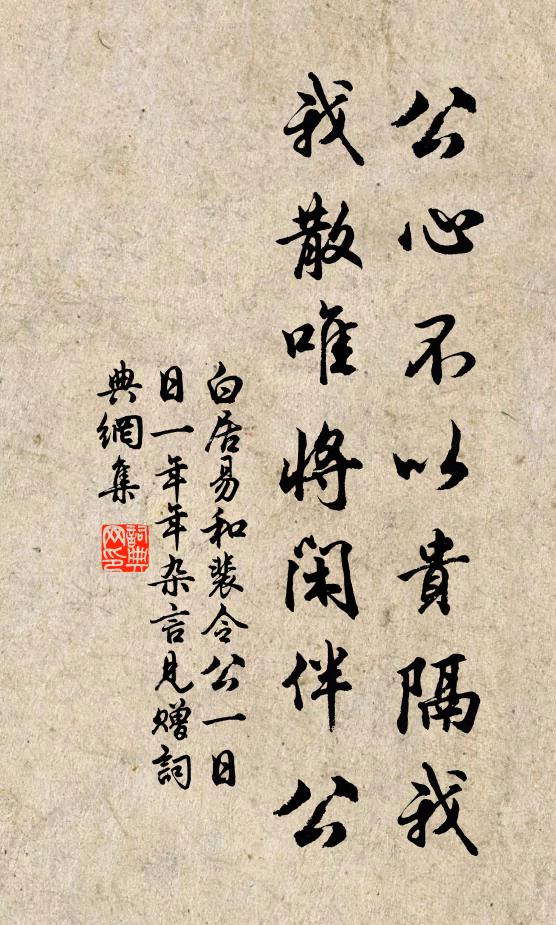 公心不以貴隔我
我散唯將閑伴公
白居易和裴令公一日
日一年年杂言見贈詞
典網集
詞典网印